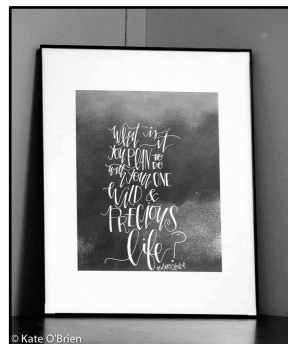 What is it
you PLAN TO DO
with your ONE
WILD &
PRECIOUS
life?
© Kate O'Brien